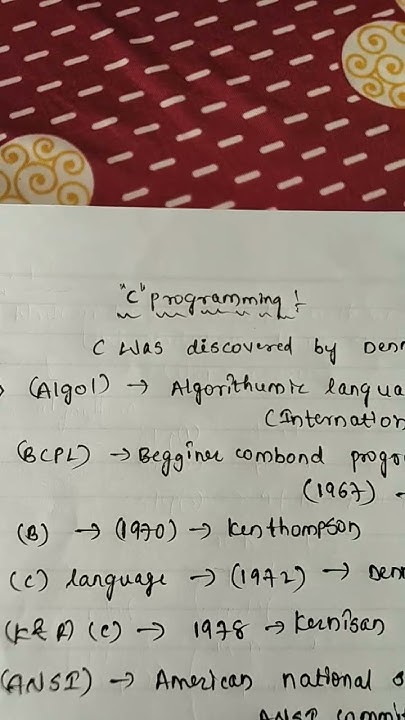 "C" programming :-
C was discovered by Denn
(Algol) → Algorithumic langua
(Internation
(BCPL) → Begginer combond progr
(1967) -
(B) → (1970) → Ken thompson
(C) language → (1972) → Den
(K& R) (C) → 1978 → Kernisan
(ANSI) → American national s
ANSI commi